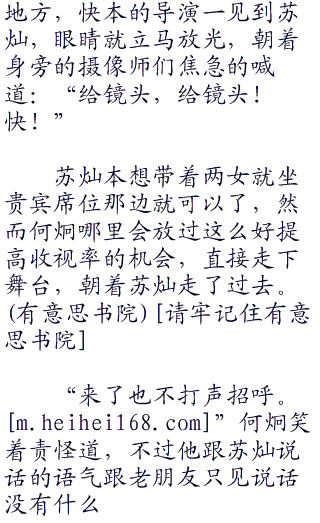 地方，快本的导演一见到苏
灿，眼睛就立马放光，朝着
身旁的摄像师们焦急的喊
道：“给镜头，给镜头！
快！”
苏灿本想带着两女就坐
贵宾席位那边就可以了，然
而何炯哪里会放过这么好提
高收视率的机会，直接走下
舞台，朝着苏灿走了过去。
(有意思书院)[请牢记住有意
思书院]
“来了也不打声招呼。
[m.heihei168.com]”何炯笑
着责怪道，不过他跟苏灿说
话的语气跟老朋友只见说话
没有什么